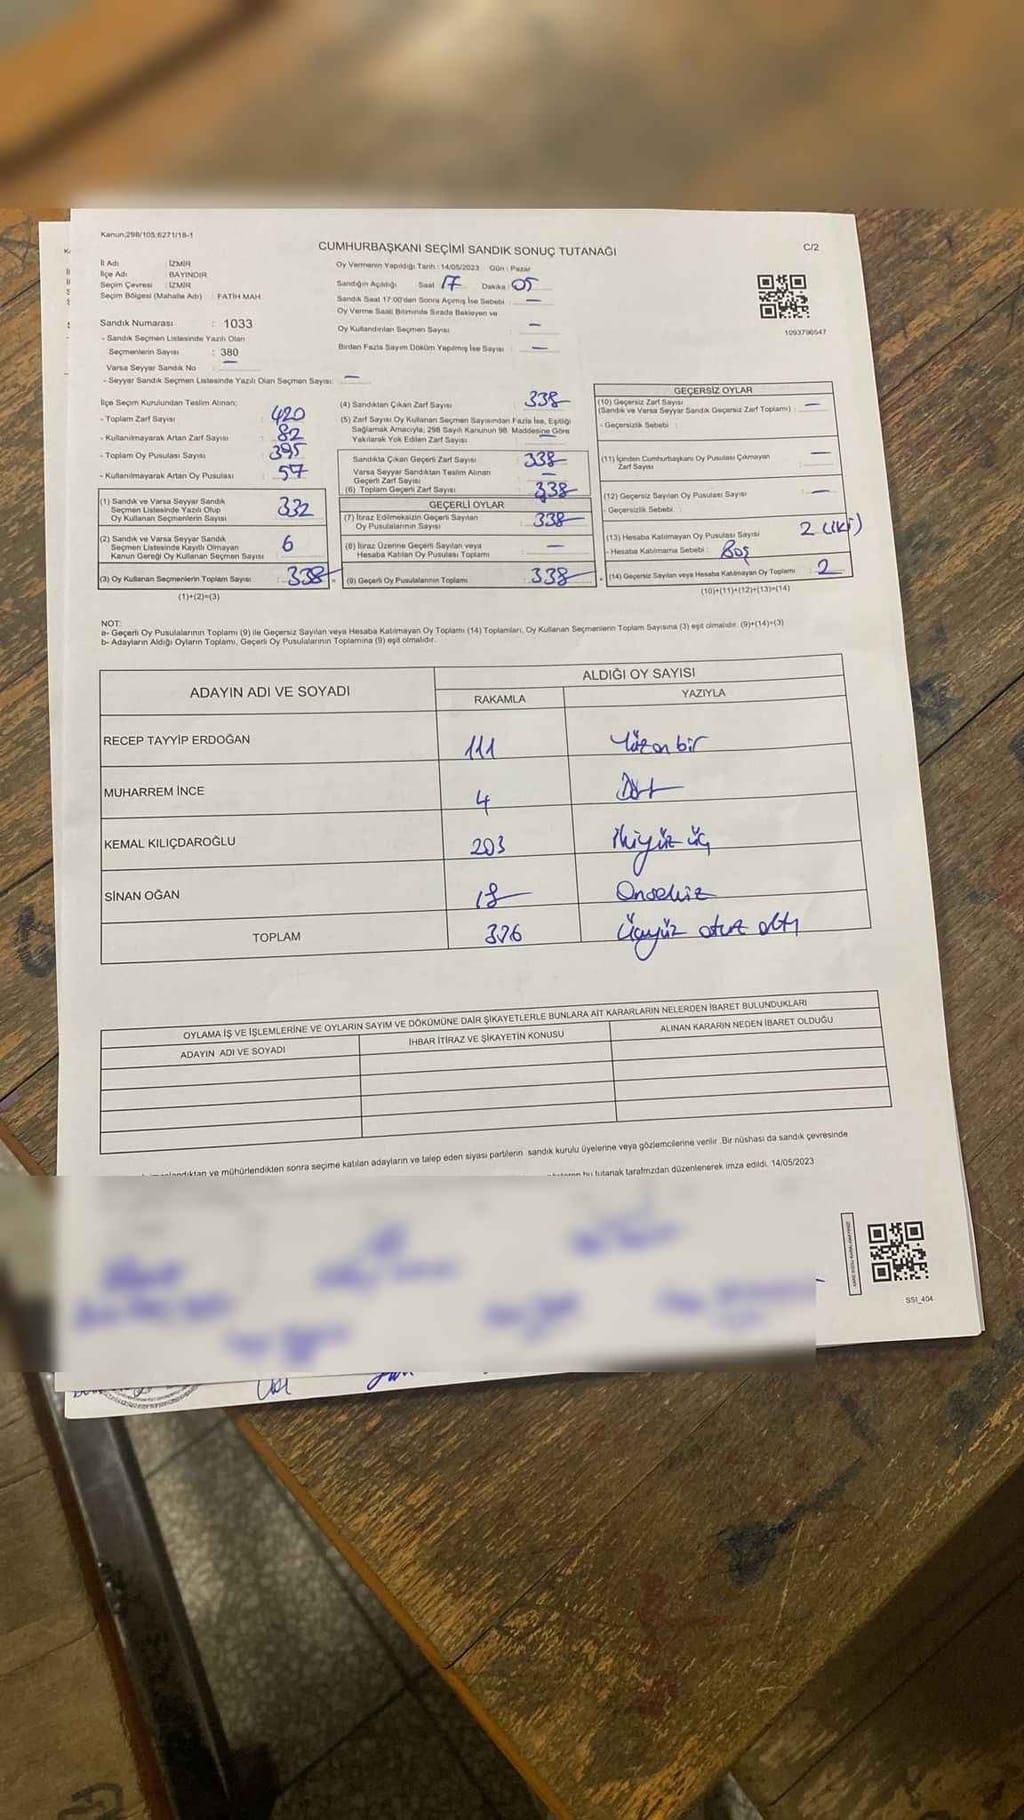 Kanun:298/105;6271/18-1
CUMHURBAŞKANI SEÇİMİ SANDIK SONUÇ TUTANAĞI
C/2
İl Adı : İZMİR
İlçe Adı : BAYINDIR
Seçim Çevresi : İZMİR
Seçim Bölgesi (Mahalle Adı) : FATİH MAH.
Oy Vermenin Yapıldığı Tarih : 14/05/2023 Gün : Pazar
Sandığın Açıldığı Saat 17 Dakika 05
Sandık Saat 17:00'den Sonra Açılmış İse Sebebi : —
Oy Verme Saati Bitiminde Sırada Bekleyen ve
Oy Kullandırılan Seçmen Sayısı : —
Birden Fazla Sayım Döküm Yapılmış İse Sayısı : —
1093796547
Sandık Numarası : 1033
- Sandık Seçmen Listesinde Yazılı Olan
Seçmenlerin Sayısı : 380
Varsa Seyyar Sandık No —
- Seyyar Sandık Seçmen Listesinde Yazılı Olan Seçmen Sayısı: —
İlçe Seçim Kurulundan Teslim Alınan:
- Toplam Zarf Sayısı : 420
- Kullanılmayarak Artan Zarf Sayısı : 82
- Toplam Oy Pusulası Sayısı : 395
- Kullanılmayarak Artan Oy Pusulası : 57
(1) Sandık ve Varsa Seyyar Sandık
Seçmen Listesinde Yazılı Olup
Oy Kullanan Seçmenlerin Sayısı : 332
(2) Sandık ve Varsa Seyyar Sandık
Seçmen Listesinde Kayıtlı Olmayan
Kanun Gereği Oy Kullanan Seçmen Sayısı : 6
(3) Oy Kullanan Seçmenlerin Toplam Sayısı : 338
(1)+(2)=(3)
(4) Sandıktan Çıkan Zarf Sayısı : 338
(5) Zarf Sayısı Oy Kullanan Seçmen Sayısından Fazla İse, Eşitliği
Sağlamak Amacıyla, 298 Sayılı Kanunun 98. Maddesine Göre
Yakılarak Yok Edilen Zarf Sayısı : —
Sandıkta Çıkan Geçerli Zarf Sayısı : 338
Varsa Seyyar Sandıktan Teslim Alınan
Geçerli Zarf Sayısı : —
(6) Toplam Geçerli Zarf Sayısı : 338
GEÇERLİ OYLAR
(7) İtiraz Edilmeksizin Geçerli Sayılan
Oy Pusulalarının Sayısı : 338
(8) İtiraz Üzerine Geçerli Sayılan veya
Hesaba Katılan Oy Pusulası Toplamı : —
(9) Geçerli Oy Pusulalarının Toplamı : 338
GEÇERSİZ OYLAR
(10) Geçersiz Zarf Sayısı
(Sandık ve Varsa Seyyar Sandık Geçersiz Zarf Toplamı) : —
- Geçersizlik Sebebi :
(11) İçinden Cumhurbaşkanı Oy Pusulası Çıkmayan
Zarf Sayısı : —
(12) Geçersiz Sayılan Oy Pusulası Sayısı : —
- Geçersizlik Sebebi :
(13) Hesaba Katılmayan Oy Pusulası Sayısı 2 (iki)
- Hesaba Katılmama Sebebi : Boş
(14) Geçersiz Sayılan veya Hesaba Katılmayan Oy Toplamı : 2
(10)+(11)+(12)+(13)=(14)
NOT:
a- Geçerli Oy Pusulalarının Toplamı (9) ile Geçersiz Sayılan veya Hesaba Katılmayan Oy Toplamı (14) Toplamları, Oy Kullanan Seçmenlerin Toplam Sayısına (3) eşit olmalıdır. (9)+(14)=(3)
b- Adayların Aldığı Oyların Toplamı, Geçerli Oy Pusulalarının Toplamına (9) eşit olmalıdır.
ADAYIN ADI VE SOYADI
ALDIĞI OY SAYISI
RAKAMLA YAZIYLA
RECEP TAYYİP ERDOĞAN 111 Yüzonbir
MUHARREM İNCE 4 Dört
KEMAL KILIÇDAROĞLU 203 İkiyüz üç
SİNAN OĞAN 18 Onsekiz
TOPLAM 336 Üçyüz otuz altı
OYLAMA İŞ VE İŞLEMLERİNE VE OYLARIN SAYIM VE DÖKÜMÜNE DAİR ŞİKAYETLERLE BUNLARA AİT KARARLARIN NELERDEN İBARET BULUNDUKLARI
ADAYIN ADI VE SOYADI İHBAR İTİRAZ VE ŞİKAYETİN KONUSU ALINAN KARARIN NEDEN İBARET OLDUĞU
ve mühürlendikten sonra seçime katılan adayların ve talep eden siyasi partilerin sandık kurulu üyelerine veya gözlemcilerine verilir. Bir nüshası da sandık çevresinde
bu tutanak tarafımızdan düzenlenerek imza edildi. 14/05/2023
SSI_404